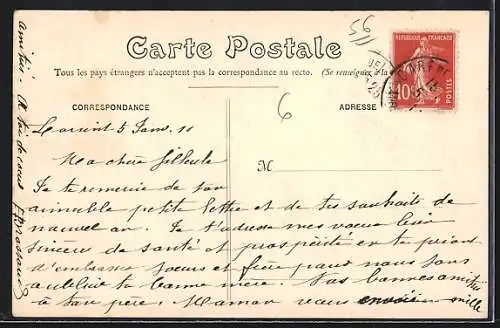 Carte Postale
Tous les pays étrangers n'acceptent pas la correspondance au recto. (Se renseignez à la
CORRESPONDANCE
ADRESSE
REPUBLIQUE FRANÇAISE
10
POSTES
6
M
Lorient 5 Janv. 11
Ma chère filleule
Je te remercie de ton
aimable petite lettre et de tes souhaits de
nouvel an. Je t'adresse mes vœux bien
sincères de santé et prospérité en te priant
d'embrasser sœurs et frère pour nous sans
oublier ta bonne mère. Nos bonnes amitiés
à ton père. Maman vous envoie mille
amitiés. A toi de cœur